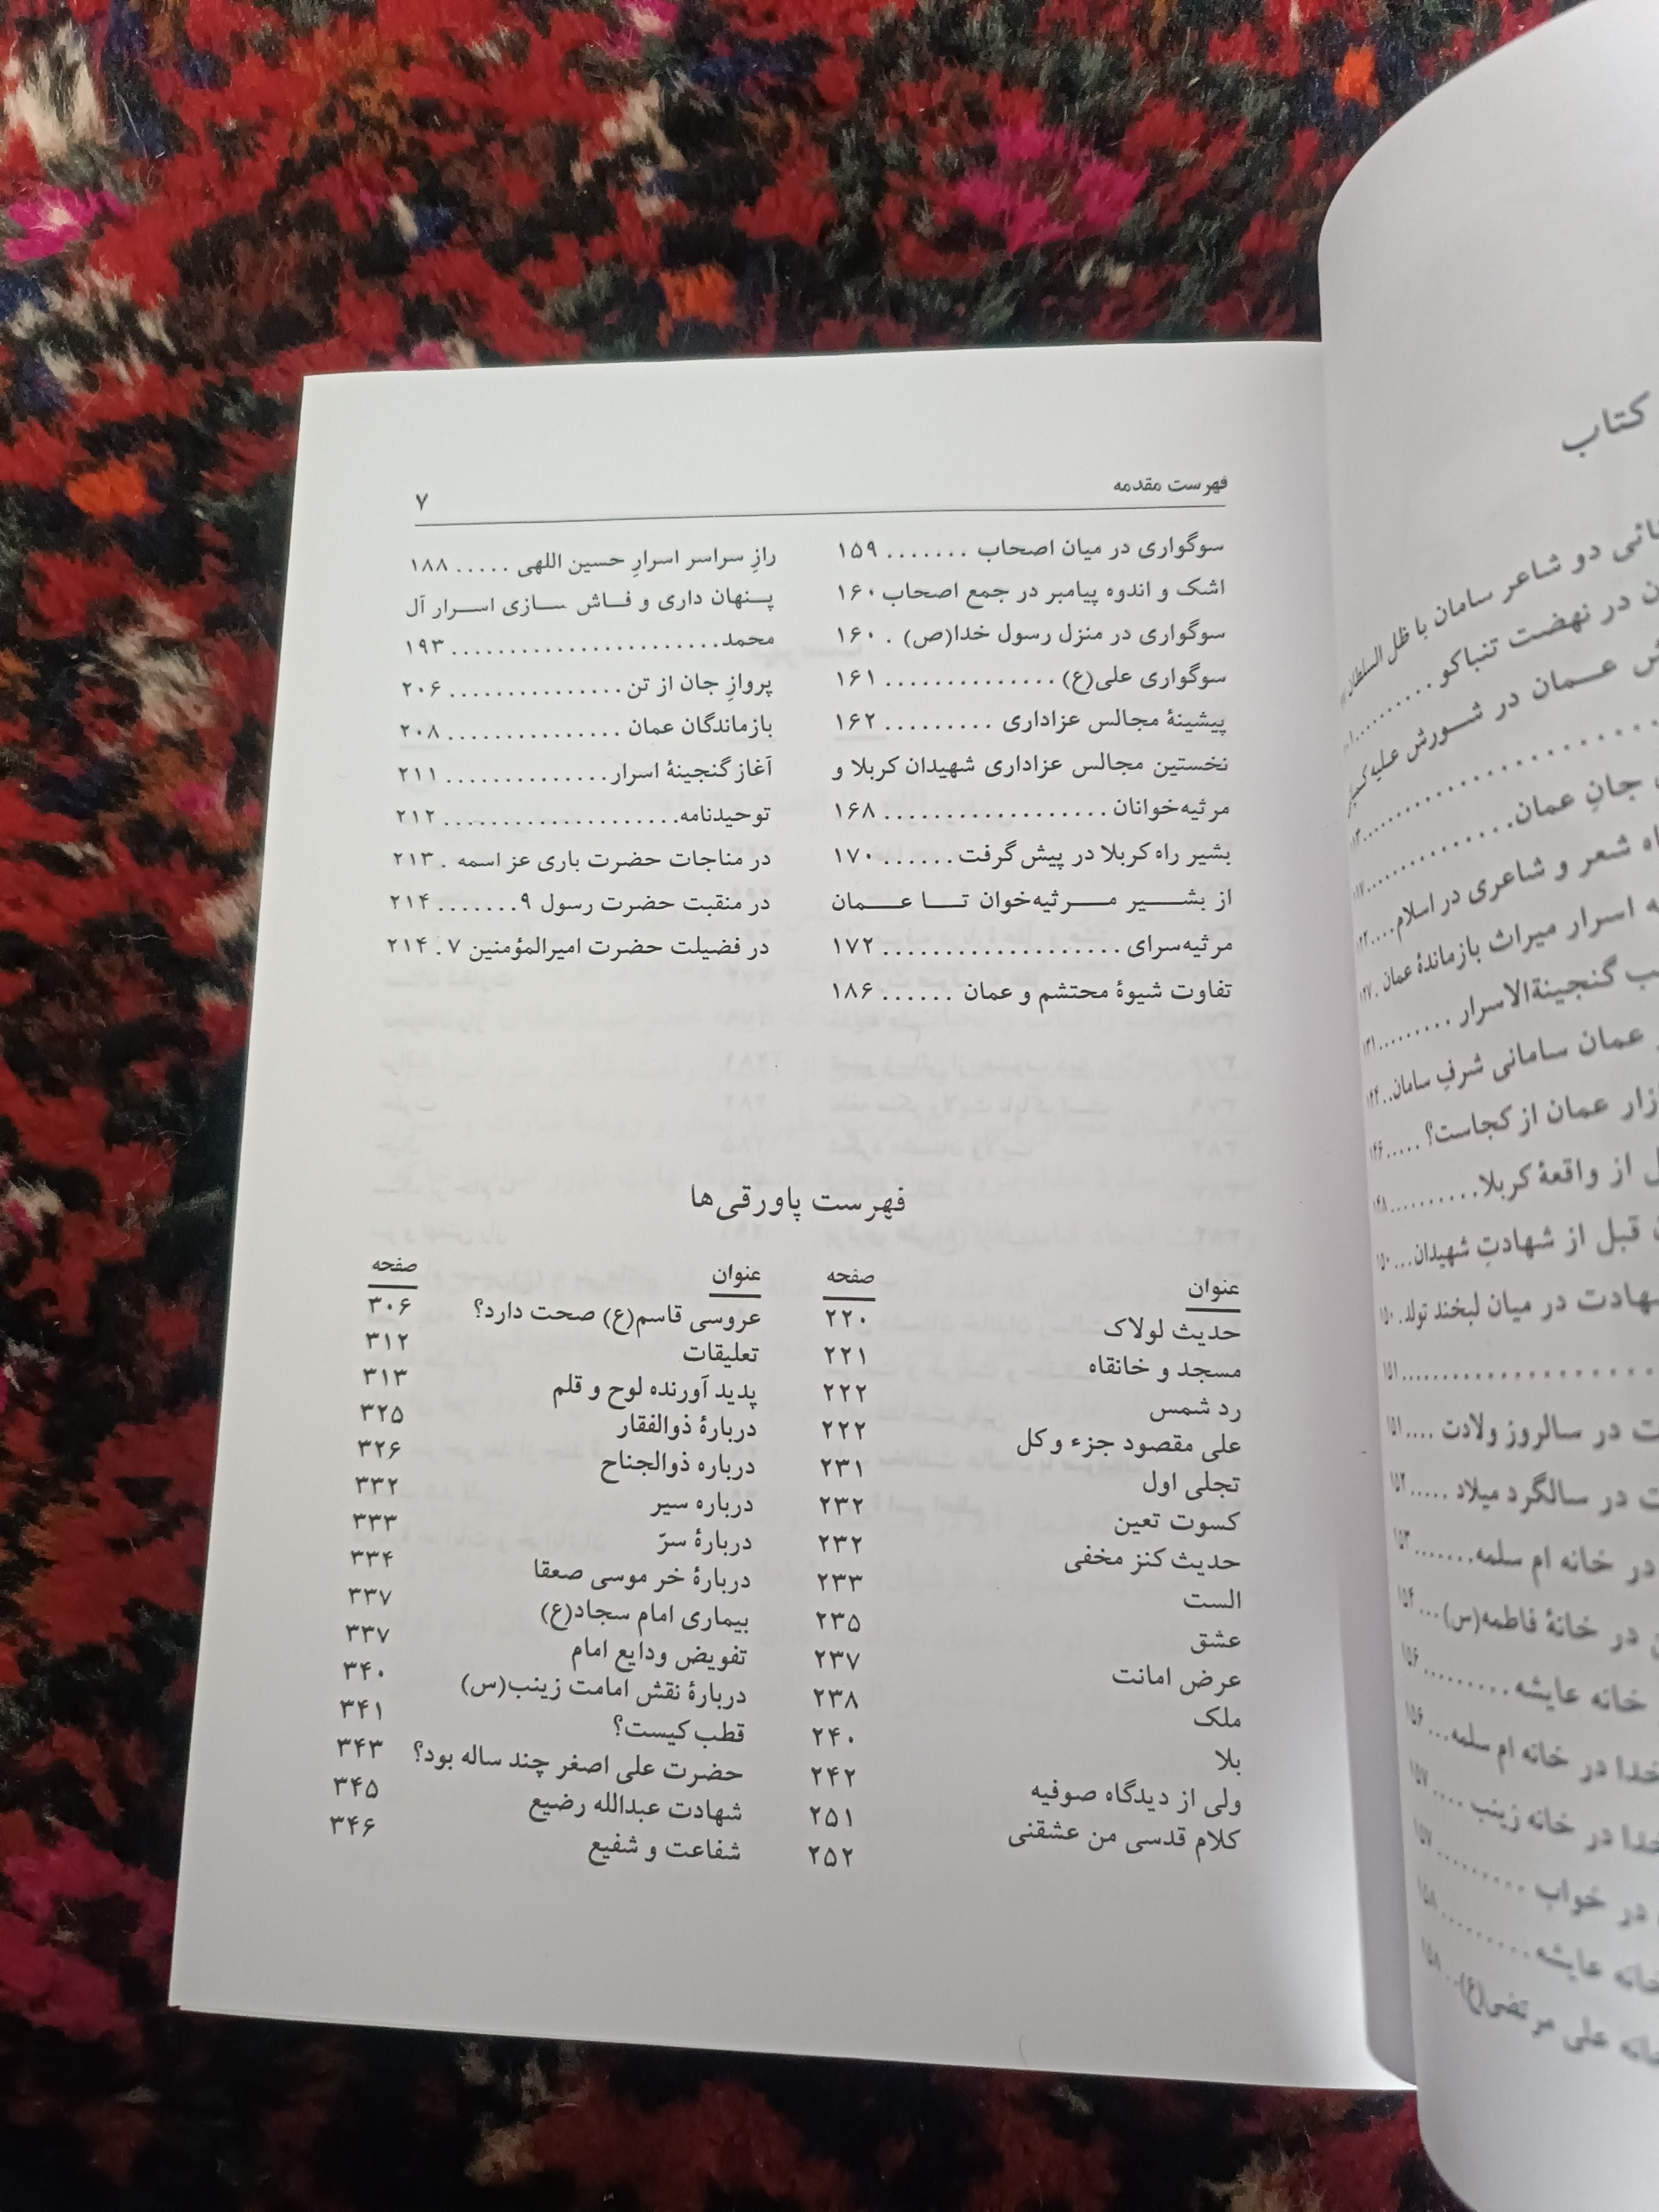 فهرست مقدمه ۷
سوگواری در میان اصحاب ....... ۱۵۹
اشک و اندوه پیامبر در جمع اصحاب ۱۶۰
سوگواری در منزل رسول خدا(ص) . ۱۶۰
سوگواری علی(ع) .............. ۱۶۱
پیشینهٔ مجالس عزاداری ......... ۱۶۲
نخستین مجالس عزاداری شهیدان کربلا و
مرثیه‌خوانان ................... ۱۶۸
بشیر راه کربلا در پیش گرفت ...... ۱۷۰
از بشیر مرثیه‌خوان تا عمان
مرثیه‌سرای .................... ۱۷۲
تفاوت شیوهٔ محتشم و عمان ...... ۱۸۶
رازِ سراسر اسرارِ حسین اللهی ..... ۱۸۸
پنهان داری و فاش سازی اسرار آل
محمد....................... ۱۹۳
پروازِ جان از تن ............... ۲۰۶
بازماندگان عمان ............... ۲۰۸
آغاز گنجینهٔ اسرار .............. ۲۱۱
توحیدنامه.................... ۲۱۲
در مناجات حضرت باری عز اسمه . ۲۱۳
در منقبت حضرت رسول ۹....... ۲۱۴
در فضیلت حضرت امیرالمؤمنین ۷. ۲۱۴
فهرست پاورقی‌ها
عنوان صفحه
حدیث لولاک ۲۲۰
مسجد و خانقاه ۲۲۱
رد شمس ۲۲۲
علی مقصود جزء و کل ۲۲۲
تجلی اول ۲۳۱
کسوت تعین ۲۳۲
حدیث کنز مخفی ۲۳۲
الست ۲۳۳
عشق ۲۳۵
عرض امانت ۲۳۷
ملک ۲۳۸
بلا ۲۴۰
ولی از دیدگاه صوفیه ۲۴۲
کلام قدسی من عشقنی ۲۵۱
۲۵۲
عنوان صفحه
عروسی قاسم(ع) صحت دارد؟ ۳۰۶
تعلیقات ۳۱۲
پدید آورنده لوح و قلم ۳۱۳
دربارهٔ ذوالفقار ۳۲۵
درباره ذوالجناح ۳۲۶
درباره سیر ۳۳۲
دربارهٔ سرّ ۳۳۳
دربارهٔ خر موسی صعقا ۳۳۴
بیماری امام سجاد(ع) ۳۳۷
تفویض ودایع امام ۳۳۷
دربارهٔ نقش امامت زینب(س) ۳۴۰
قطب کیست؟ ۳۴۱
حضرت علی اصغر چند ساله بود؟ ۳۴۳
شهادت عبدالله رضیع ۳۴۵
شفاعت و شفیع ۳۴۶
کتاب
دو شاعر سامان با ظل السلطان
در نهضت تنباکو ..........
عمان در شورش علیه
جانِ عمان.............. ۱۱۷
شعر و شاعری در اسلام .... ۱۲۲
اسرار میراث بازماندهٔ عمان . ۱۲۷
گنجینةالاسرار ......... ۱۳۱
عمان سامانی شرفِ سامان.. ۱۴۴
عمان از کجاست؟ ..... ۱۴۶
از واقعهٔ کربلا.......... ۱۴۸
قبل از شهادتِ شهیدان... ۱۵۰
در میان لبخند تولد . ۱۵۰
.................... ۱۵۱
در سالروز ولادت .... ۱۵۱
در سالگرد میلاد ..... ۱۵۲
در خانه ام سلمه....... ۱۵۳
در خانهٔ فاطمه(س)... ۱۵۴
خانه عایشه ......... ۱۵۶
خدا در خانه ام سلمه... ۱۵۶
در خانه زینب .... ۱۵۷
در خواب ......... ۱۵۷
عایشه .......... ۱۵۸
علی مرتضی(ع).. ۱۵۸